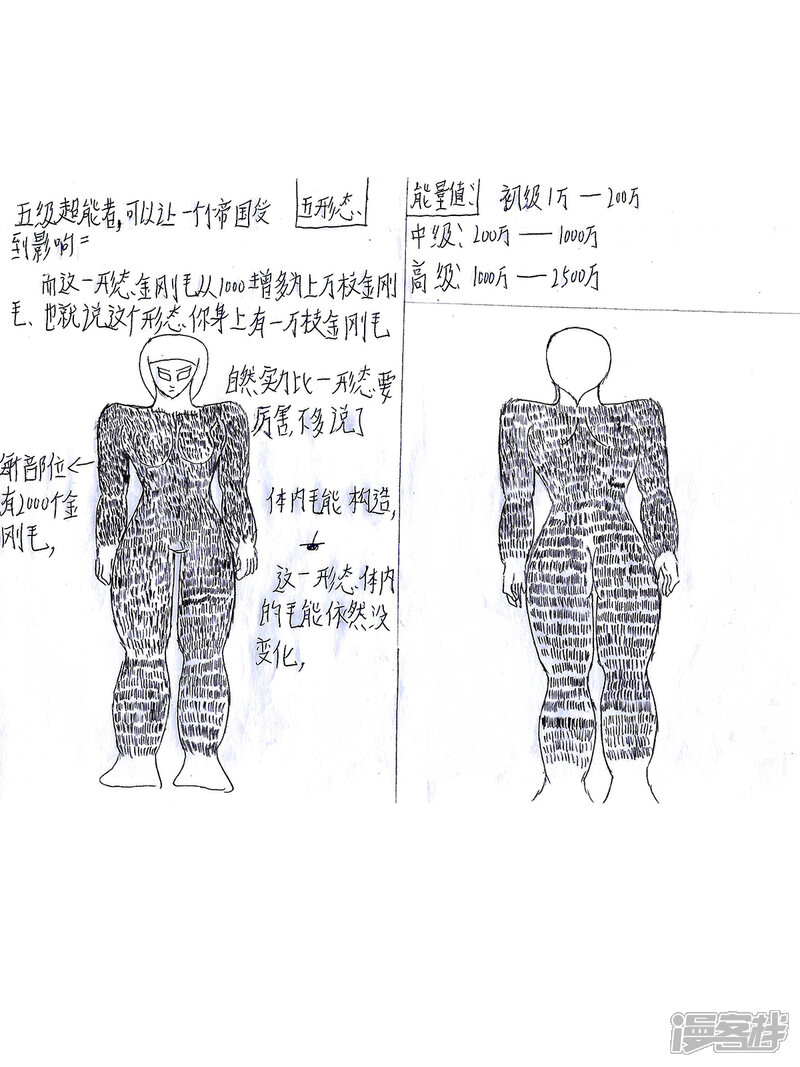 五级超能者,可以让一个帝国受
到影响=
五形态、
而这一形态、金刚毛从1000增多为上万枝金刚
毛、也就说这个形态、你身上有一万枝金刚毛
自然实力比一形态、要
厉害,不多说了
每部位←
有2000个金
刚毛,
体内毛能构造,
这一形态、体内
的毛能依然没
变化,
能量值:
初级1万—200万
中级:200万—1000万
高级:1000万—2500万
漫客栈